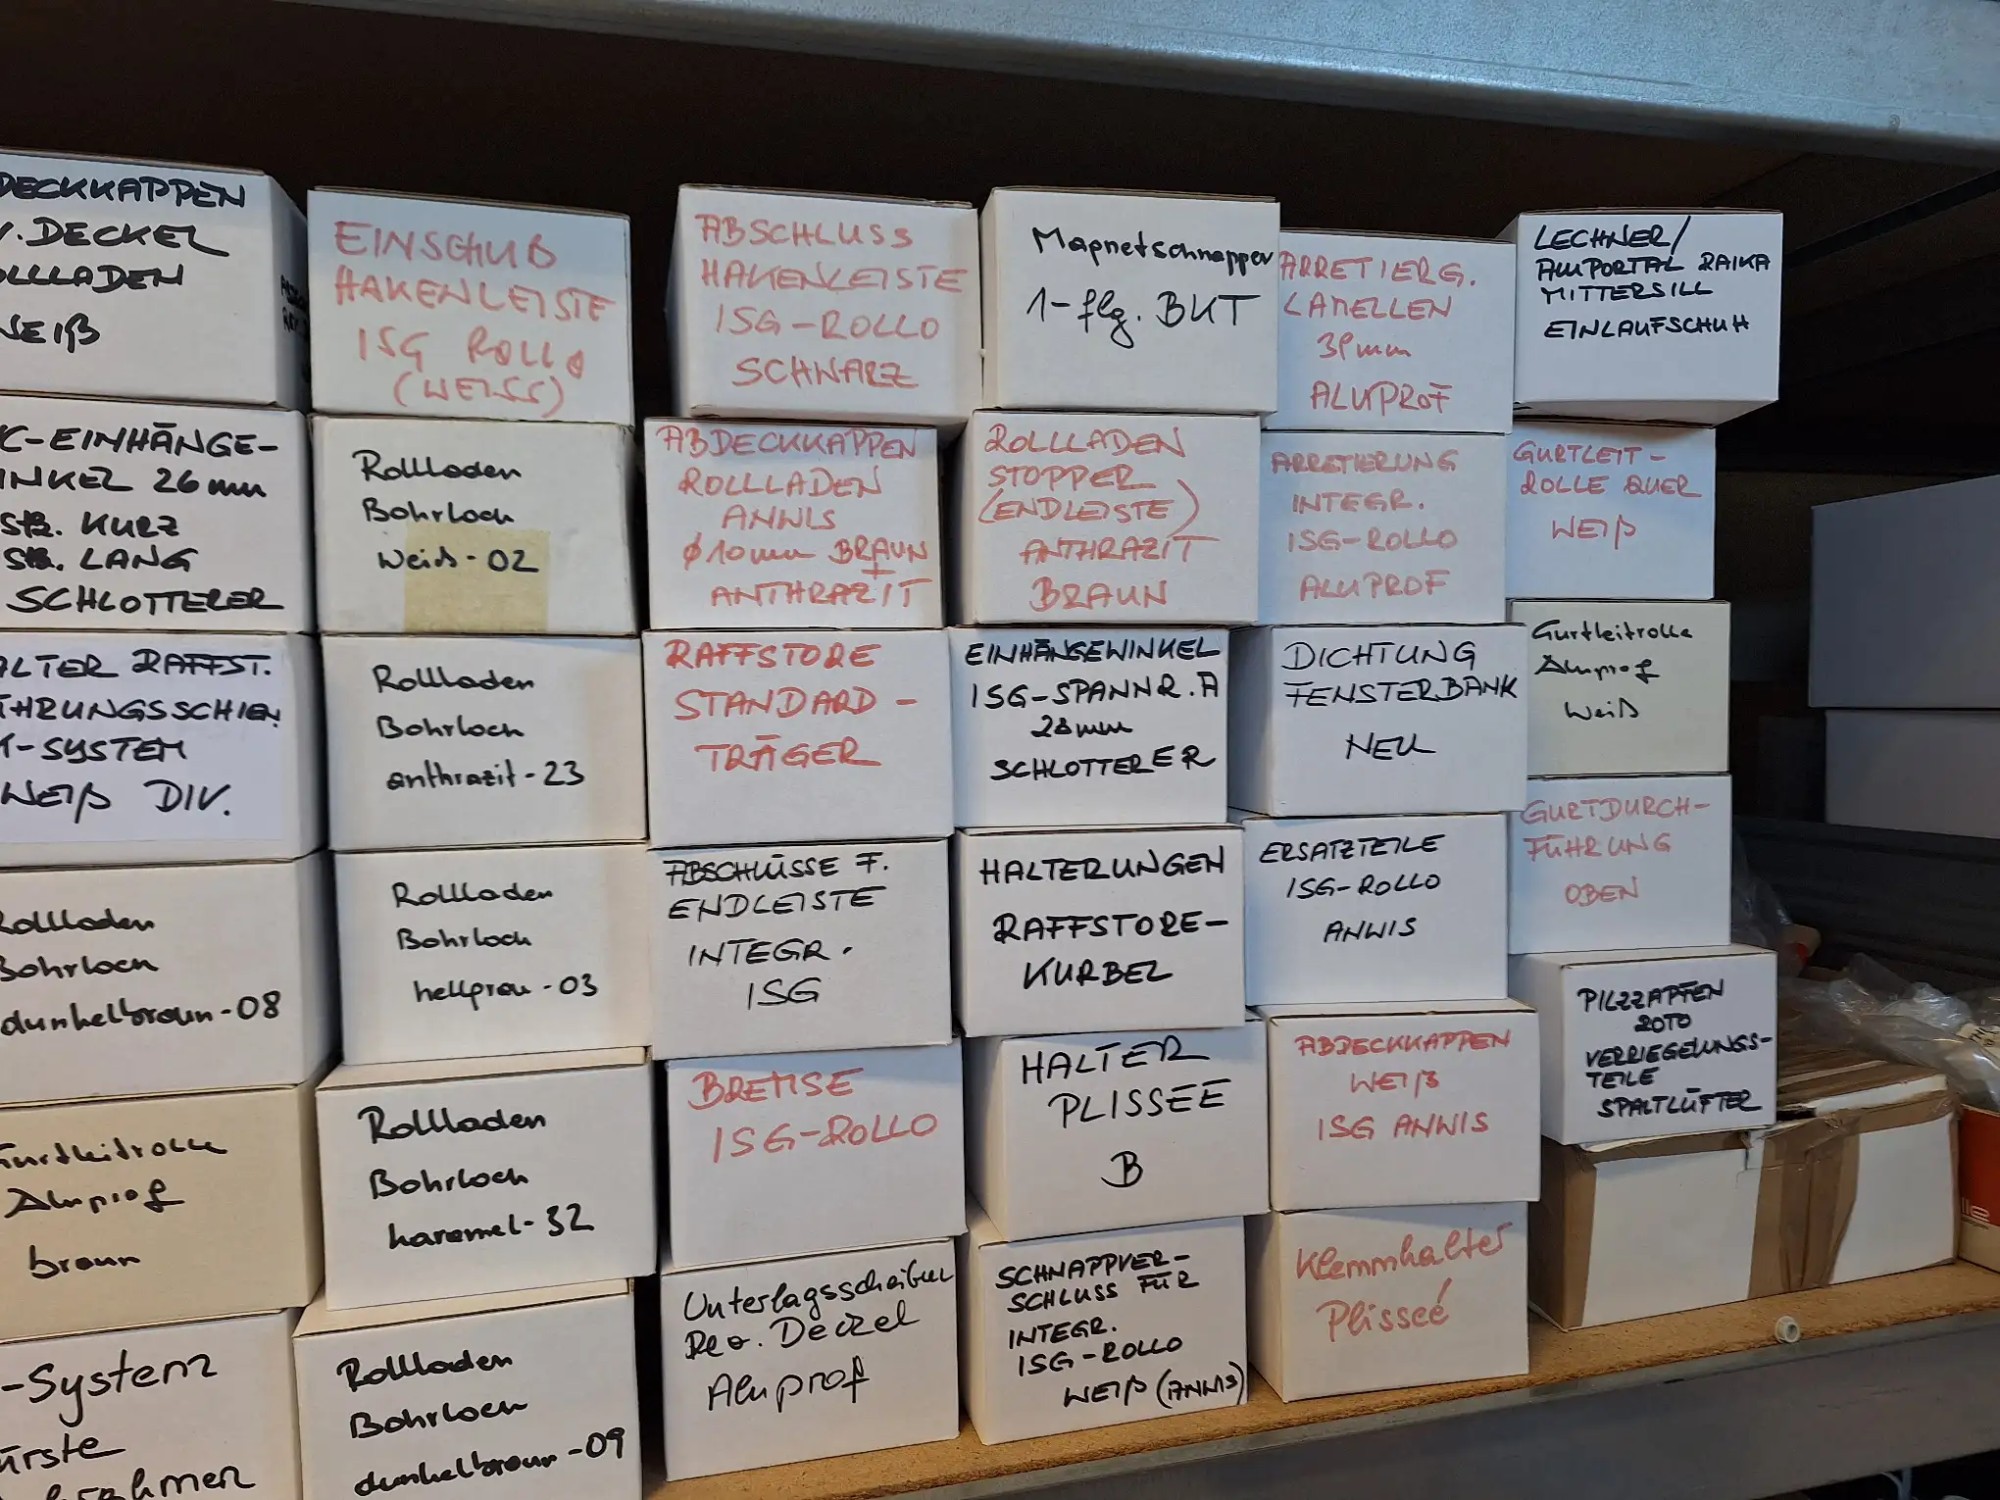 DECKKAPPEN
V. DECKEL
OLLLADEN
WEIß
C-EINHÄNGE-
INKEL 26mm
Stk. KURZ
Stk. LANG
SCHLOTTERER
ALTER RAFFST.
ÜHRUNGSSCHIEN.
-SYSTEM
WEIß DIV.
Rollladen
Bohrloch
dunkelbraun-08
Gurtleitrolle
Aluprof
braun
-System
ürste
rahmen
EINSCHUB
HAKENLEISTE
ISG ROLLO
(WEISS)
Rollladen
Bohrloch
Weiß-02
Rollladen
Bohrloch
anthrazit-23
Rollladen
Bohrloch
hellgrau-03
Rollladen
Bohrloch
karamel-32
Rollladen
Bohrloch
dunkelbraun-09
ABSCHLUSS
HAKENLEISTE
ISG-ROLLO
SCHWARZ
ABDECKKAPPEN
ROLLLADEN
ANWIS
Ø10mm BRAUN
+
ANTHRAZIT
RAFFSTORE
STANDARD-
TRÄGER
ABSCHLÜSSE F.
ENDLEISTE
INTEGR.
ISG
BREMSE
ISG-ROLLO
Unterlagsscheiben
Rev. Deckel
Aluprof
Magnetschnapper
1-flg. BKT
ROLLLADEN
STOPPER
(ENDLEISTE)
ANTHRAZIT
BRAUN
EINHÄNGEWINKEL
ISG-SPANNR. A
28mm
SCHLOTTERER
HALTERUNGEN
RAFFSTORE-
KURBEL
HALTER
PLISSEE
B
SCHNAPPVER-
SCHLUSS FÜR
INTEGR.
ISG-ROLLO
WEIß (ANWIS)
ARRETIERG.
LAMELLEN
39mm
ALUPROF
ARRETIERUNG
INTEGR.
ISG-ROLLO
ALUPROF
DICHTUNG
FENSTERBANK
NEU
ERSATZTEILE
ISG-ROLLO
ANWIS
ABDECKKAPPEN
WEIß
ISG ANWIS
Klemmhalter
Plisseé
LECHNER/
ALUPORTAL RAIKA
MITTERSILL
EINLAUFSCHUH
GURTLEIT-
ROLLE QUER
WEIß
Gurtleitrolle
Aluprof
Weiß
GURTDURCH-
FÜHRUNG
OBEN
PILZZAPFEN
ROTO
VERRIEGELUNGS-
TEILE
SPALTLÜFTER